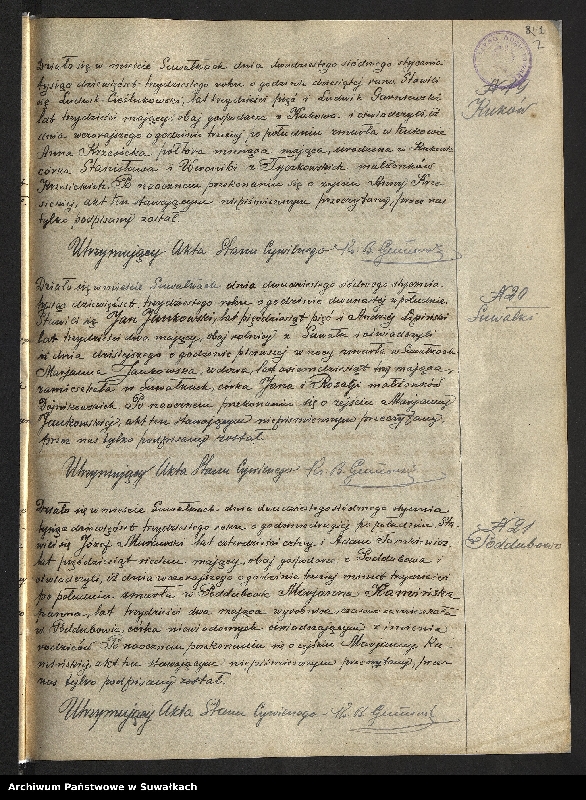 841
2
Działo się w mieście Suwałkach dnia dwudziestego siódmego stycznia
tysiąc dziewięćset trzydziestego roku o godzinie dziesiątej rano. Stawili
się Ludwik lat trzydzieści pięć i Ludwik
lat trzydzieści mający, obaj gospodarze z Kukowa i oświadczyli iż
dnia wczorajszego o godzinie trzeciej po południu zmarła w Kukowie
Anna Krzesicka półtora miesiąca mająca, urodzona w Kukowie
córka Stanisława i Weroniki z małżonków
Krzesickich. Po naocznem przekonaniu się o zejściu Anny Krze-
sickiej, akt ten stawającym niepiśmiennym przeczytany, przez nas
tylko podpisany został.
Utrzymujący Akta Stanu Cywilnego Ks. B.
N 19
Kuków
Działo się w mieście Suwałkach dnia dwudziestego siódmego stycznia
tysiąc dziewięćset trzydziestego roku o godzinie dwunastej w południe.
Stawili się Jan Jankowski, lat pięćdziesiąt pięć i Andrzej Lipiński
lat trzydzieści dwa mający, obaj rolnicy z Suwałk i oświadczyli
iż dnia dzisiejszego o godzinie pierwszej w nocy zmarła w Suwałkach
Marjanna Jankowska, wdowa, lat osiemdziesiąt mająca,
zamieszkała w Suwałkach, córka Jana i Rozalji małżonków
Po naocznem przekonaniu się o zejściu Marjanny
Jankowskiej, akt ten stawającym niepiśmiennym przeczytany,
przez nas tylko podpisany został.
Utrzymujący Akta Stanu Cywilnego Ks. B.
N 20
Suwałki
Działo się w mieście Suwałkach dnia dwudziestego siódmego stycznia
tysiąc dziewięćset trzydziestego roku o godzinie po południu. Sta-
wili się Józef Murawski lat czterdzieści cztery i Adam
lat pięćdziesiąt siedem mający, obaj gospodarze z Poddubowa i
oświadczyli, iż dnia wczorajszego o godzinie trzeciej minut trzydzieści
po południu zmarła w Poddubowie Marjanna Kamińska
panna, lat trzydzieści dwa mająca wyrobnica, czasowo zamieszkała
w Poddubowie, córka niewiadomych oświadczającym z imienia
rodziców. Po naocznem przekonaniu się o zejściu Marjanny Ka-
mińskiej, akt ten stawającym niepiśmiennym przeczytany, przez
nas tylko podpisany został.
Utrzymujący Akta Stanu Cywilnego - Ks. B.
N 21
Poddubowo
Archiwum Państwowe w Suwałkach